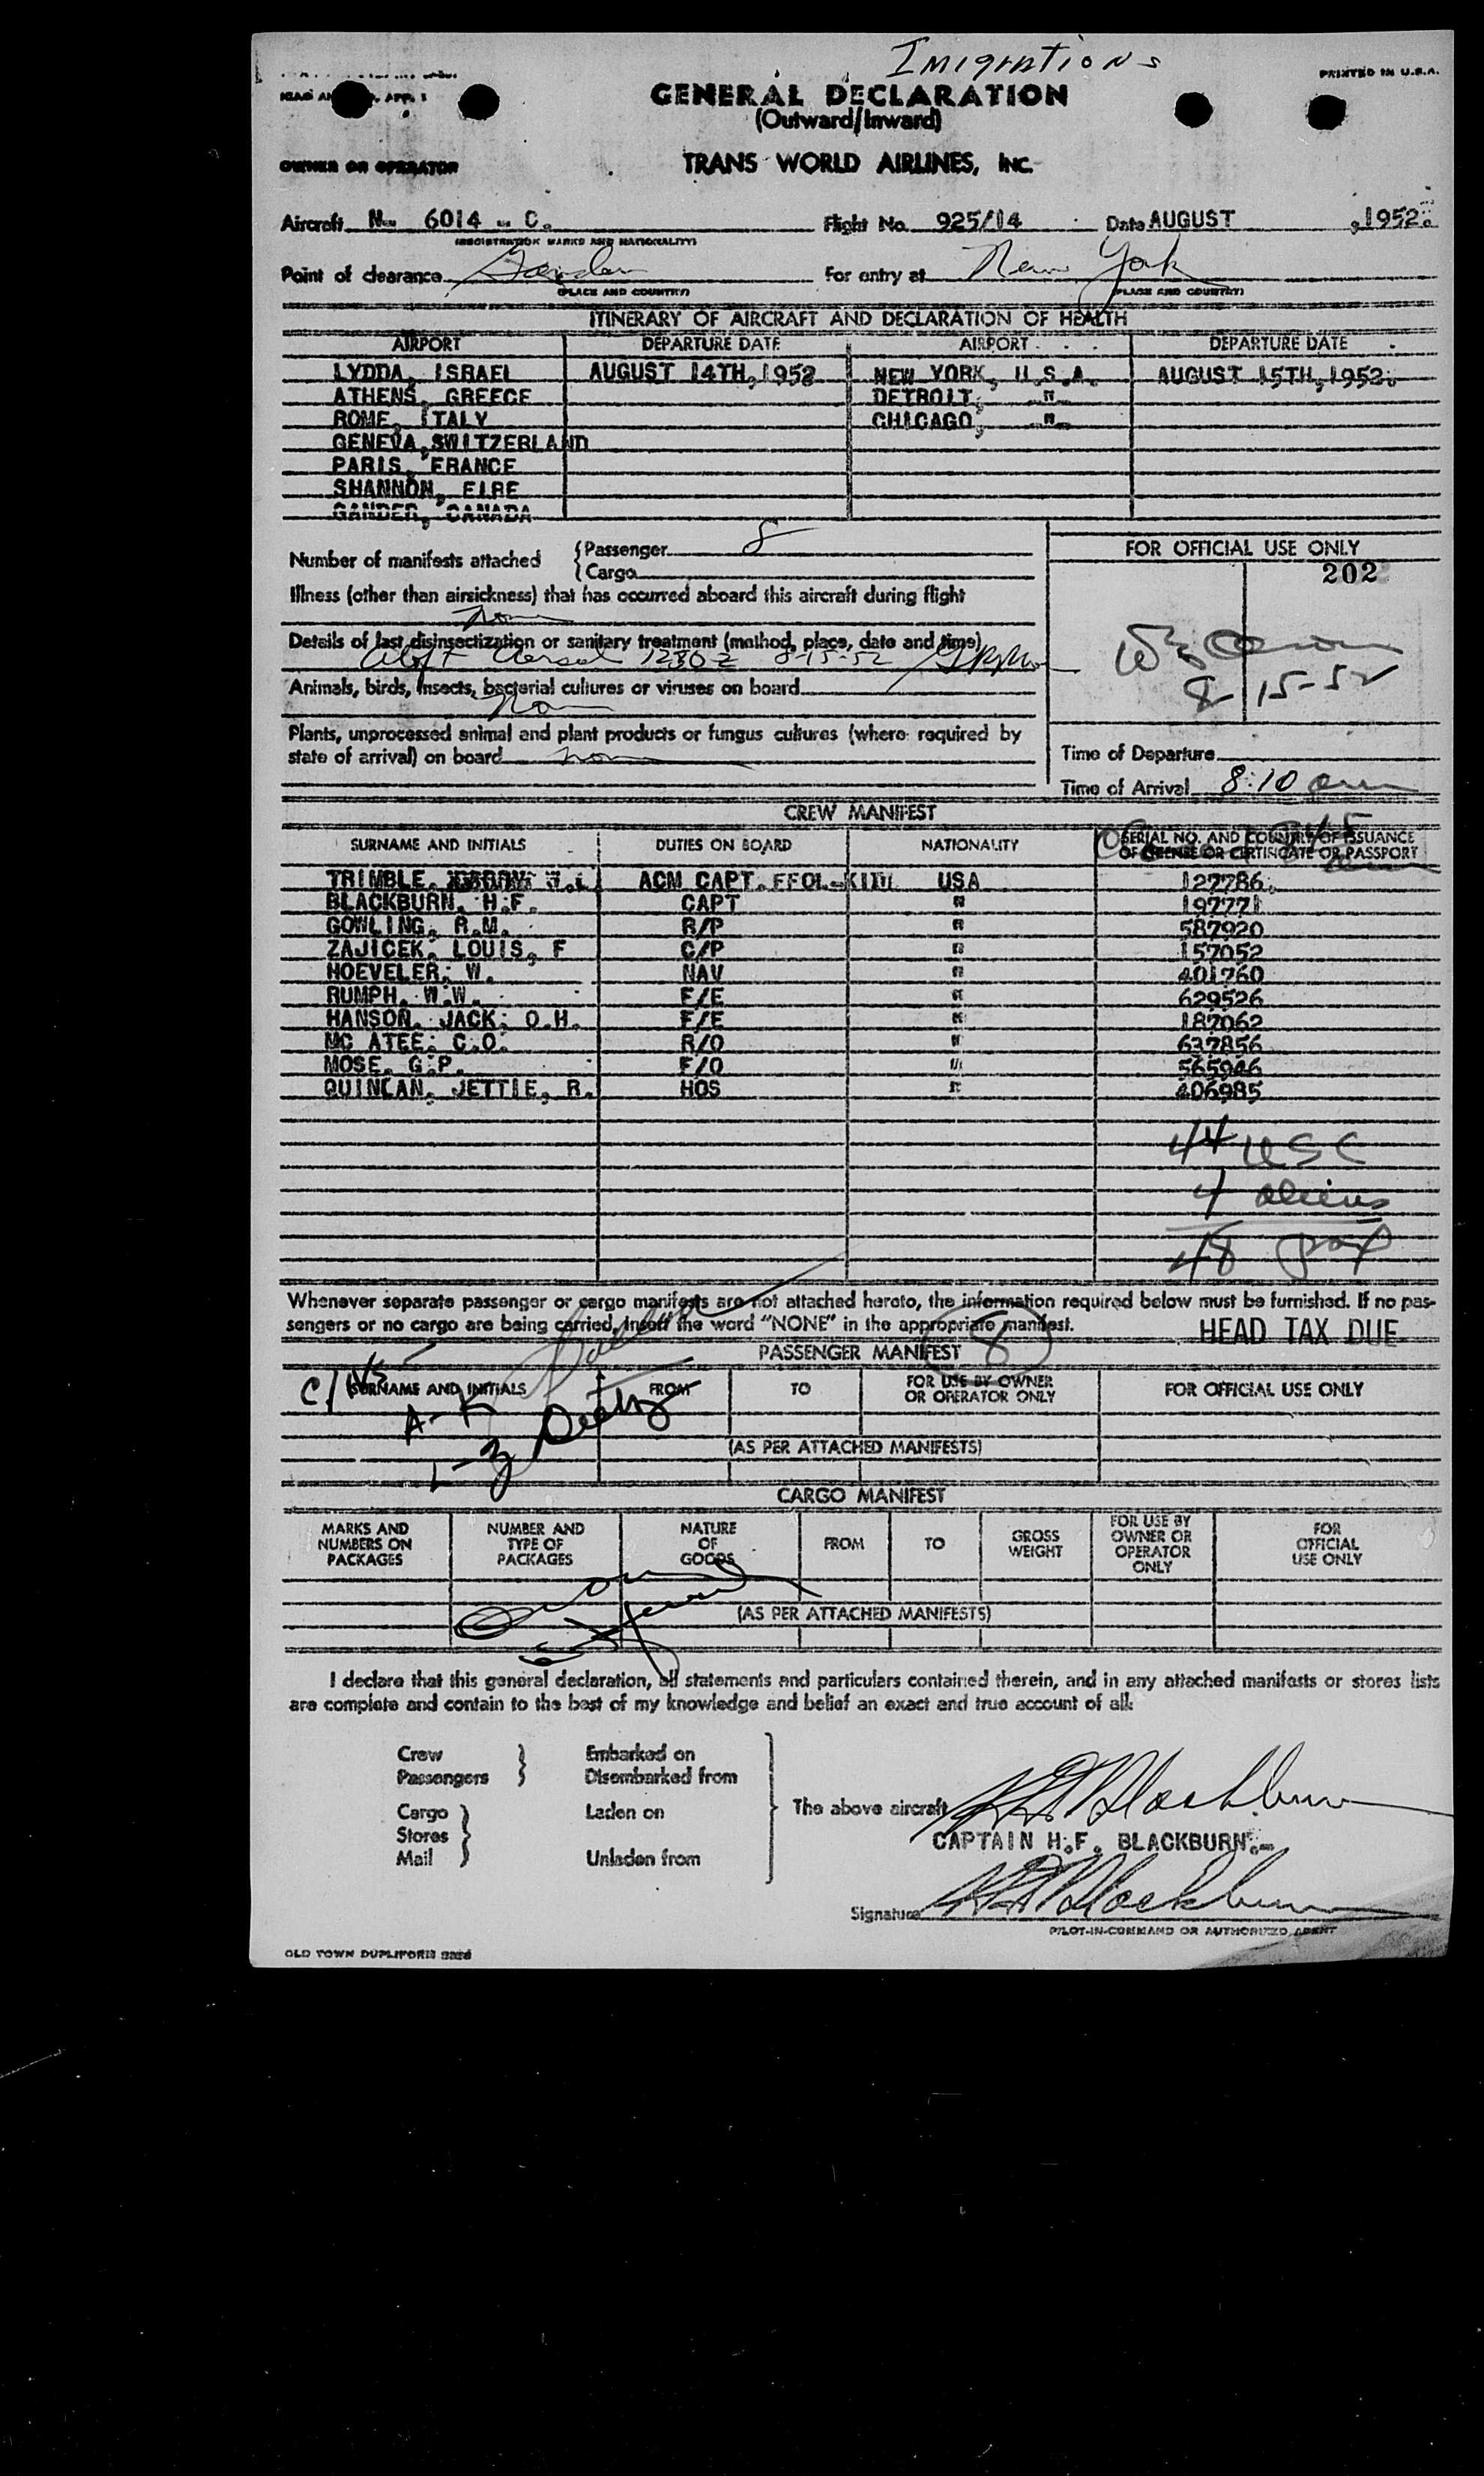 Imigrations
PRINTED IN U.S.A.
GENERAL DECLARATION
(Outward/Inward)
OWNER OR OPERATOR
TRANS WORLD AIRLINES, INC.
Aircraft N- 6014 - C. Flight No. 925/14 Date AUGUST ,1952.
(REGISTRATION MARKS AND NATIONALITY)
Point of clearance Gander For entry at New York
(PLACE AND COUNTRY) (PLACE AND COUNTRY)
ITINERARY OF AIRCRAFT AND DECLARATION OF HEALTH
AIRPORT DEPARTURE DATE AIRPORT DEPARTURE DATE
LYDDA, ISRAEL AUGUST 14TH,1952 NEW YORK, U.S.A. AUGUST 15TH,1952.
ATHENS, GREECE DETROIT, "
ROME, ITALY CHICAGO, "
GENEVA,SWITZERLAND
PARIS, FRANCE
SHANNON, EIRE
GANDER, CANADA
Number of manifests attached {Passenger 8
{Cargo
FOR OFFICIAL USE ONLY
202
Illness (other than airsickness) that has occurred aboard this aircraft during flight
Details of last disinsectization or sanitary treatment (method, place, date and time)
Aloft Aersol 1230 Z 8-15-52
Animals, birds, insects, bacterial cultures or viruses on board
8 15-52
Plants, unprocessed animal and plant products or fungus cultures (where required by
state of arrival) on board
Time of Departure
Time of Arrival 8:10 am
CREW MANIFEST
SURNAME AND INITIALS DUTIES ON BOARD NATIONALITY SERIAL NO. AND COUNTRY OF ISSUANCE
OF LICENSE OR CERTIFICATE OR PASSPORT
TRIMBLE, J.L ACM CAPT. USA 127786.
BLACKBURN, H.F. CAPT " 197771
GOWLING, R.M. R/P " 587920
ZAJICEK, LOUIS, F C/P " 157052
HOEVELER, W. NAV " 401760
RUMPH, W.W. F/E " 629526
HANSON, JACK, O.H. F/E " 187062
MC ATEE, C.O. R/O " 637856
MOSE, G.P. F/O " 565946
QUINLAN, JETTIE, R. HOS " 406985
44 USC
4 aliens
48 pax
Whenever separate passenger or cargo manifests are not attached hereto, the information required below must be furnished. If no pas-
sengers or no cargo are being carried, insert the word "NONE" in the appropriate manifest.
HEAD TAX DUE
PASSENGER MANIFEST 8
SURNAME AND INITIALS FROM TO FOR USE BY OWNER
OR OPERATOR ONLY FOR OFFICIAL USE ONLY
A-K
L-Z
(AS PER ATTACHED MANIFESTS)
CARGO MANIFEST
MARKS AND
NUMBERS ON
PACKAGES
NUMBER AND
TYPE OF
PACKAGES
NATURE
OF
GOODS
FROM
TO
GROSS
WEIGHT
FOR USE BY
OWNER OR
OPERATOR
ONLY
FOR
OFFICIAL
USE ONLY
(AS PER ATTACHED MANIFESTS)
I declare that this general declaration, all statements and particulars contained therein, and in any attached manifests or stores lists
are complete and contain to the best of my knowledge and belief an exact and true account of all:
Crew } Embarked on
Passengers } Disembarked from
Cargo } Laden on The above aircraft H F Blackburn
Stores }
CAPTAIN H.F. BLACKBURN.-
Mail } Unladen from
Signature H F Blackburn
PILOT-IN-COMMAND OR AUTHORIZED AGENT
OLD TOWN DUPLIFORM